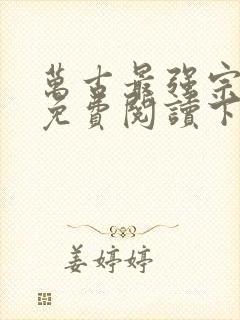 萬古最強宗
免費閱讀下
姜婷婷